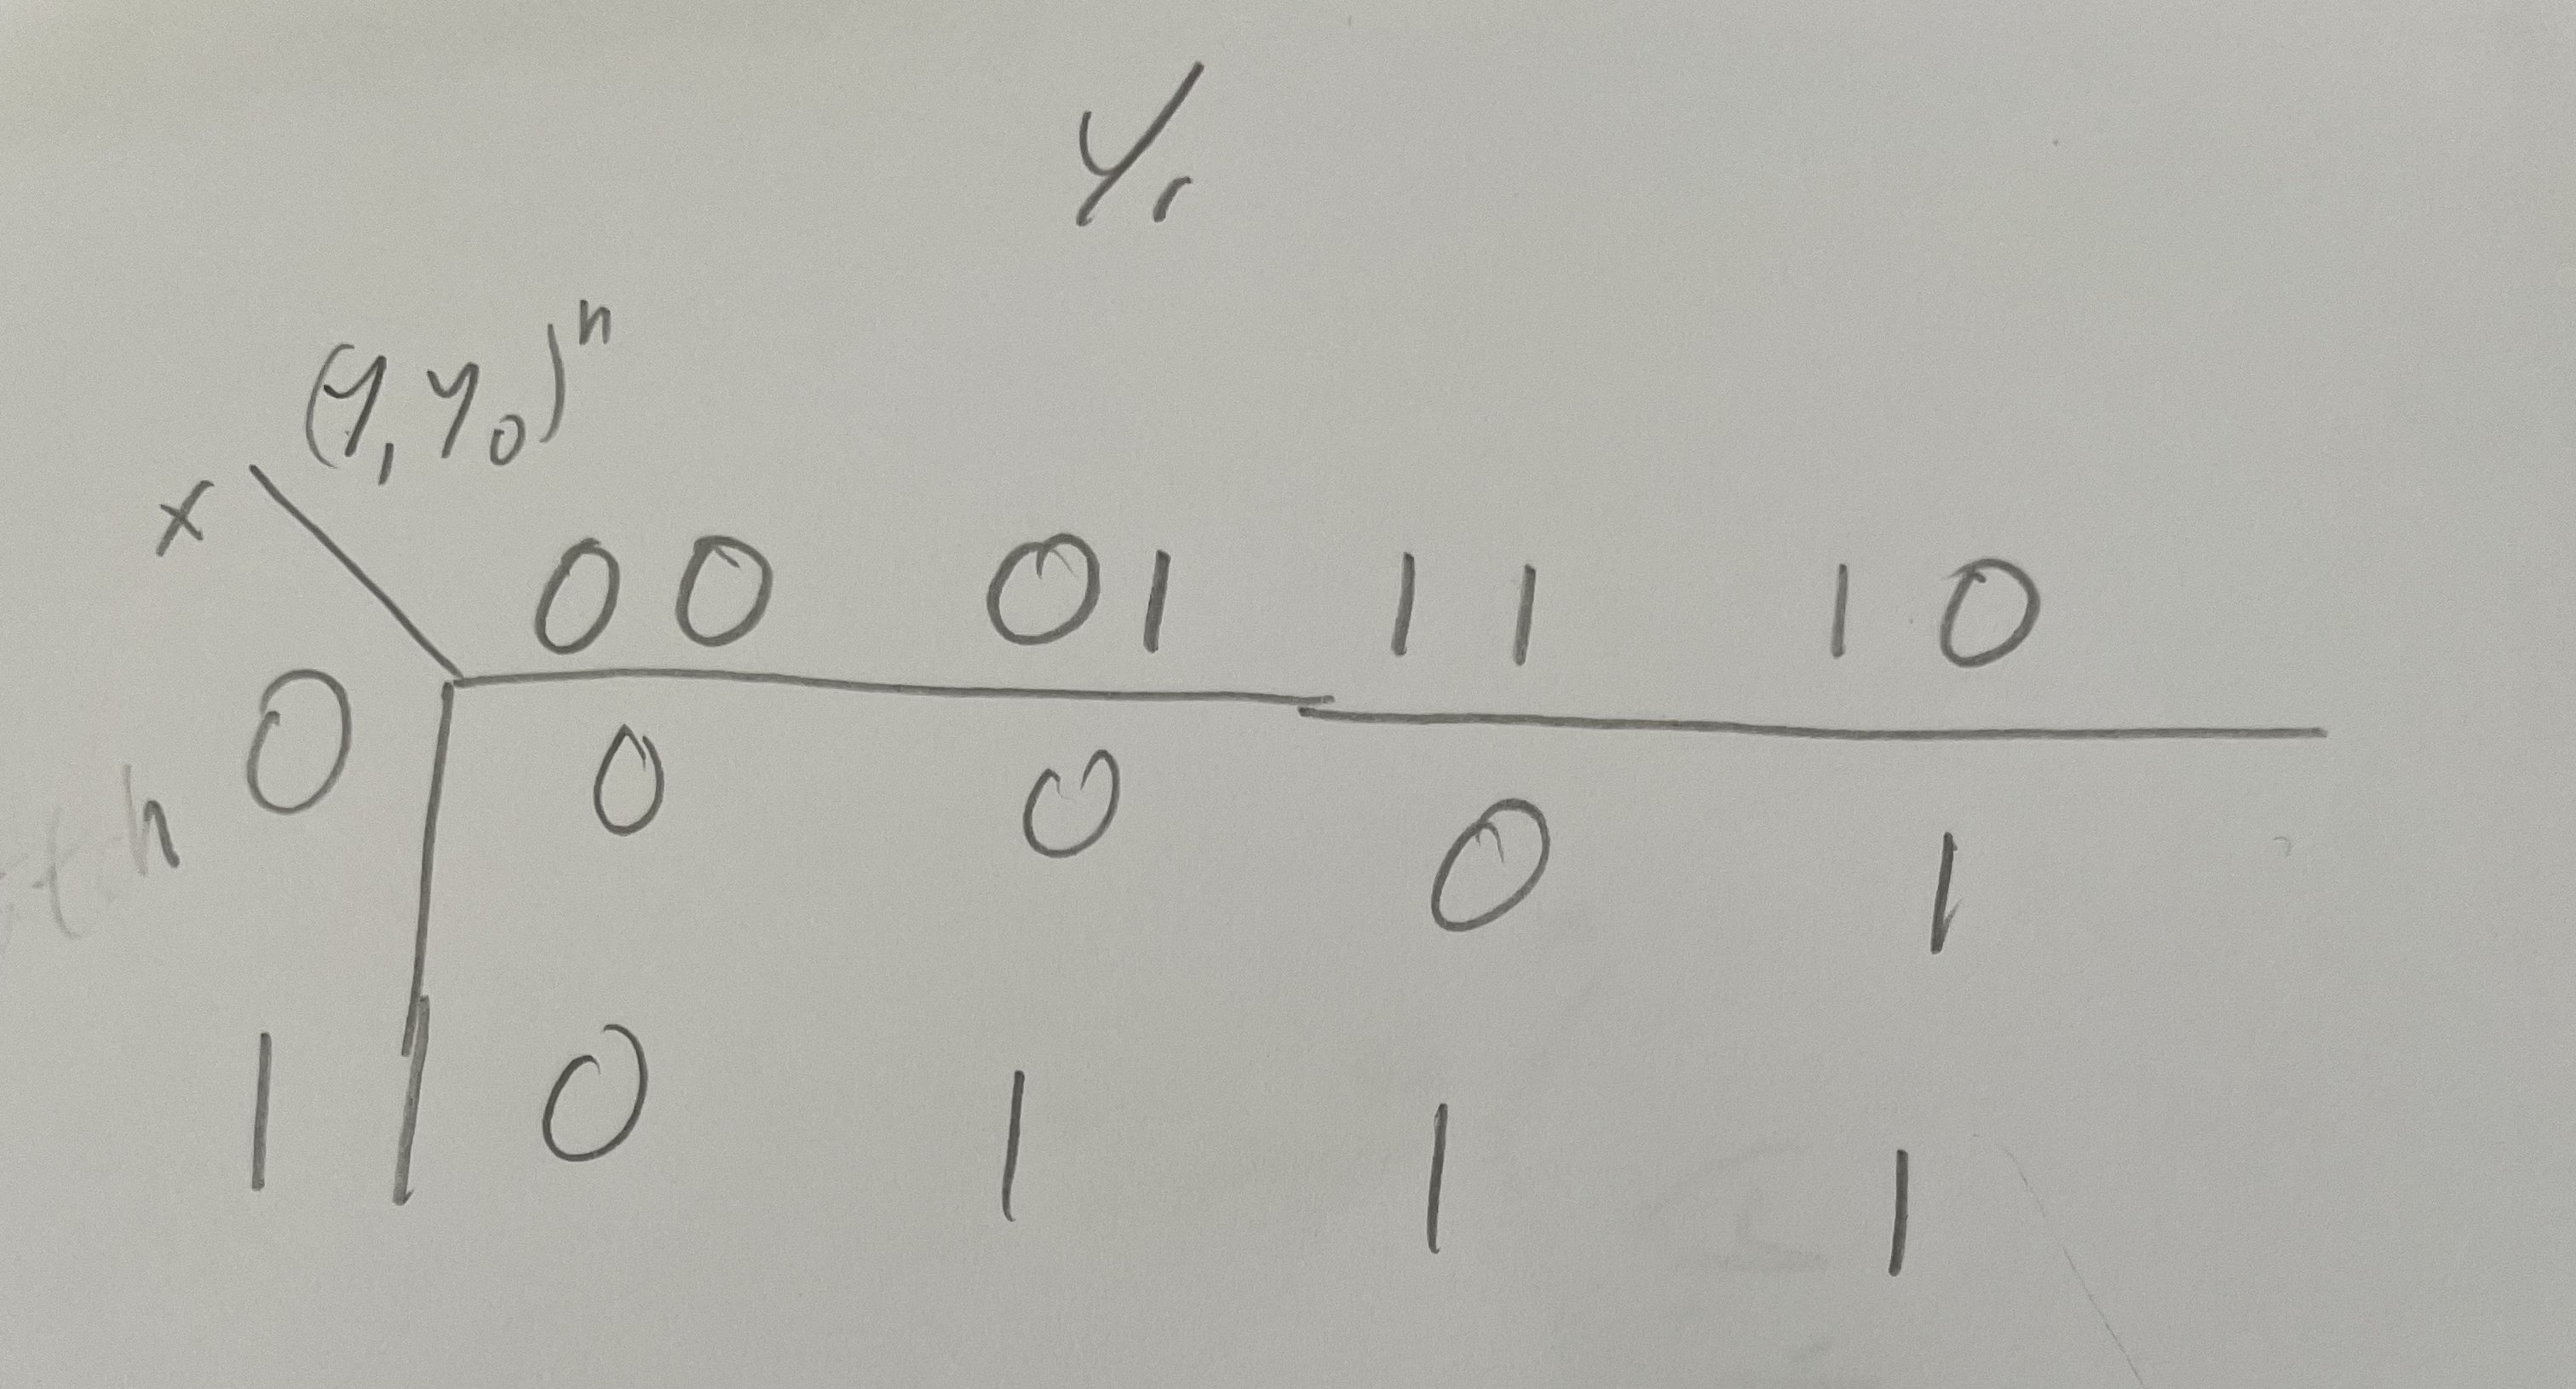 Y₁
(Y₁Y₀)ⁿ
x
00 01 11 10
0 0 0 0 1
1 0 1 1 1